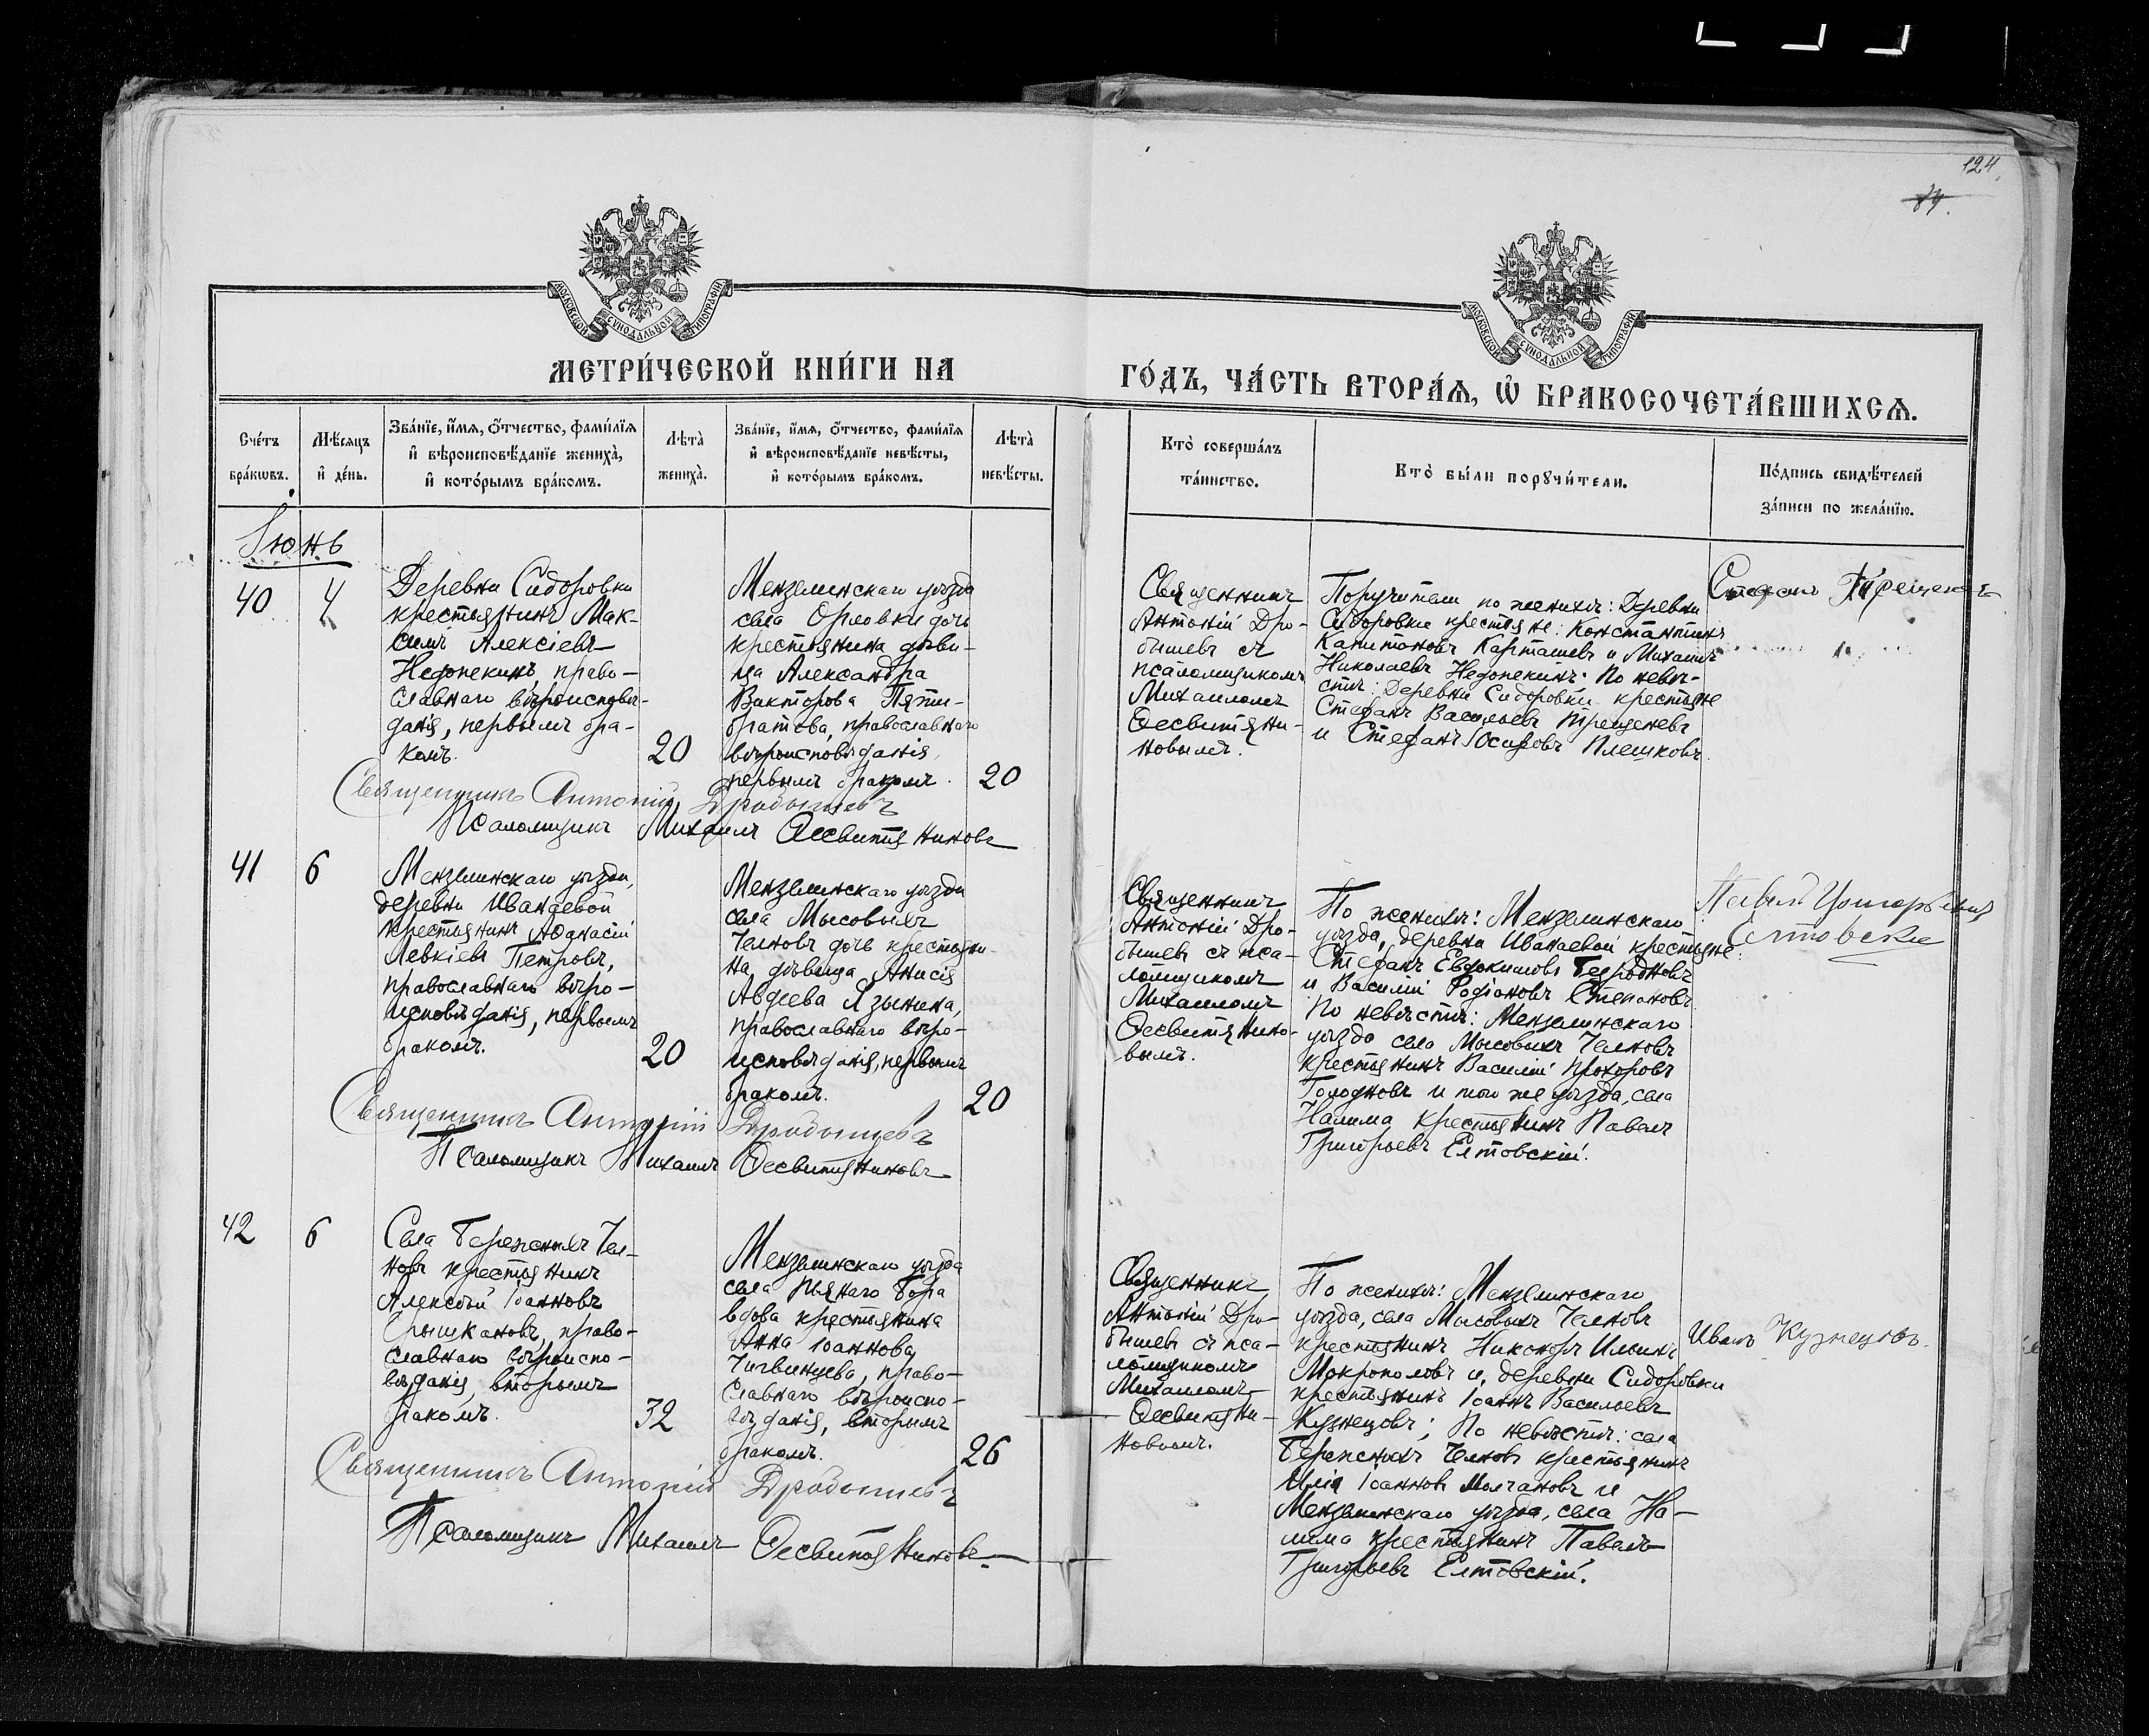 124.
84.
МОСКОВСКОЙ СѴНОДАЛЬНОЙ ТИПОГРАФІИ
МОСКОВСКОЙ СѴНОДАЛЬНОЙ ТИПОГРАФІИ
МЕТРИ́ЧЕСКОЙ КНИ́ГИ НА
ГО́ДЪ, ЧА́СТЬ ВТОРА́Ѧ, Ѡ҆ БРАКОСОЧЕТА́ВШИХСѦ.
Сче́тъ
бра́кѡвъ.
Мѣ́сѧцъ
и҆ де́нь.
Зва́нїе, и҆́мѧ, о҆́тчество, фами́лїѧ
и҆ вѣроисповѣ́данїе жениха̀,
и҆ кото́рымъ бра́комъ.
Лѣ́та̀
жениха̀.
Зва́нїе, и҆́мѧ, о҆́тчество, фами́лїѧ
и҆ вѣроисповѣ́данїе невѣ́сты,
и҆ кото́рымъ бра́комъ.
Лѣ́та̀
невѣ́сты.
Кто̀ соверша́лъ
та́инство.
Кто̀ бы́ли порꙋчи́тели.
По́дпись свидѣ́телей
за́писи по жела́нїю.
Іюнь
40
4
Деревни Сидоровки
крестьянинъ Мак-
симъ Алексіевъ
Недопекинъ, право-
славнаго вѣроисповѣ-
данія, первымъ бра-
комъ.
20
Мензелинскаго уѣзда
села Орловки дочь
крестьянина дѣви-
ца Александра
Викторова Пяти-
братова, православнаго
вѣроисповѣданія,
первымъ бракомъ.
20
Священникъ
Антоній Дро-
бышевъ съ
псаломщикомъ
Михаиломъ
Несвитяни-
новымъ.
Поручители по женихѣ: Деревни
Сидоровки крестьяне: Константинъ
Капитоновъ Карташевъ и Михаилъ
Николаевъ Недопекинъ. По невѣ-
стѣ: Деревни Сидоровки крестьяне
Стефанъ Васильевъ Трещевъ
и Стефанъ Осиповъ Плешковъ.
Стефанъ
Священникъ Антоній Дробышевъ
Псаломщикъ Михаилъ Несвитяниновъ
41
6
Мензелинскаго уѣзда,
деревни Иванаевой
крестьянинъ Аѳанасій
Левкіевъ Петровъ,
православнаго вѣро-
исповѣданія, первымъ
бракомъ.
20
Мензелинскаго уѣзда
села Мысовыхъ
Челновъ дочь крестьяни-
на, дѣвица Анисія
Авдеева Языкина,
православнаго вѣро-
исповѣданія, первымъ
бракомъ.
20
Священникъ
Антоній Дро-
бышевъ съ пса-
ломщикомъ
Михаиломъ
Несвитянино-
вымъ.
По женихѣ: Мензелинскаго
уѣзда, деревни Иванаевой крестьяне:
Стефанъ Евдокимовъ Безродновъ
и Василій Родіоновъ Степановъ.
По невѣстѣ: Мензелинскаго
уѣзда села Мысовыхъ Челновъ
крестьянинъ Василій Прохоровъ
Голодновъ и того же уѣзда, села
Налима крестьянинъ Павелъ
Григорьевъ Елтовскій.
Павелъ
Елтовски
Священникъ Антоній Дробышевъ
Псаломщикъ Михаилъ Несвитяниновъ
42
6
Села Бережныхъ Чел-
новъ крестьянинъ
Алексѣй Іоанновъ
право-
славнаго вѣроиспо-
вѣданія, вторымъ
бракомъ.
32
Мензелинскаго уѣзда
села Пьянаго Бора
вдова крестьянина
Анна Іоаннова
Чигвинцева, право-
славнаго вѣроиспо-
вѣданія, вторымъ
бракомъ.
26
Священникъ
Антоній Дро-
бышевъ съ пса-
ломщикомъ
Михаиломъ
Несвитяни-
новымъ.
По женихѣ: Мензелинскаго
уѣзда, села Мысовыхъ Челновъ
крестьянинъ Никаноръ Ильинъ
Мокрополовъ и деревни Сидоровки
крестьянинъ Іоаннъ Васильевъ
Кузнецовъ; По невѣстѣ: села
Бережныхъ Челновъ крестьянинъ
Илія Іоанновъ Молчановъ и
Мензелинскаго уѣзда, села На-
лима крестьянинъ Павелъ
Григорьевъ Елтовскій.
Иванъ Кузнецовъ.
Священникъ Антоній Дробышевъ
Псаломщикъ Михаилъ Несвитяниновъ